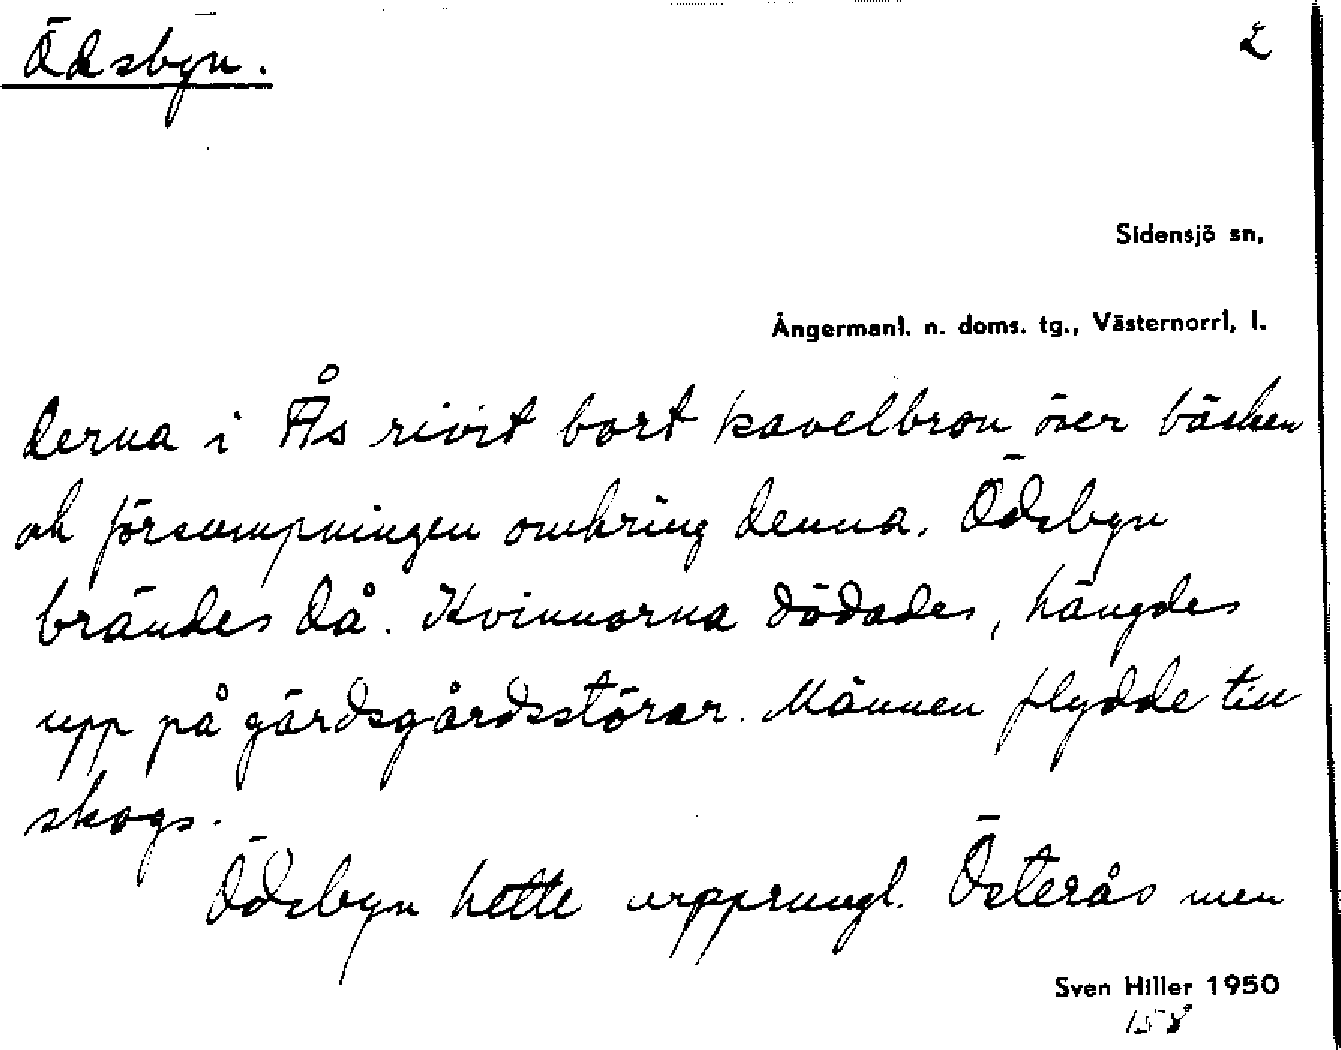 Ödsbyn.
2
Sidensjö sn,
Ångermanl. n. doms. tg., Västernorrl, l.
derna i Ås rivit bort kavelbron över bäcken
och försumpningen omkring denna. Ödsbyn
brändes då. Kvinnorna dödades, hängdes
upp på gärdsgårdsstörar. Männen flydde till
skogs.
Ödsbyn hette ursprungl. Österås men
Sven Hiller 1950
158